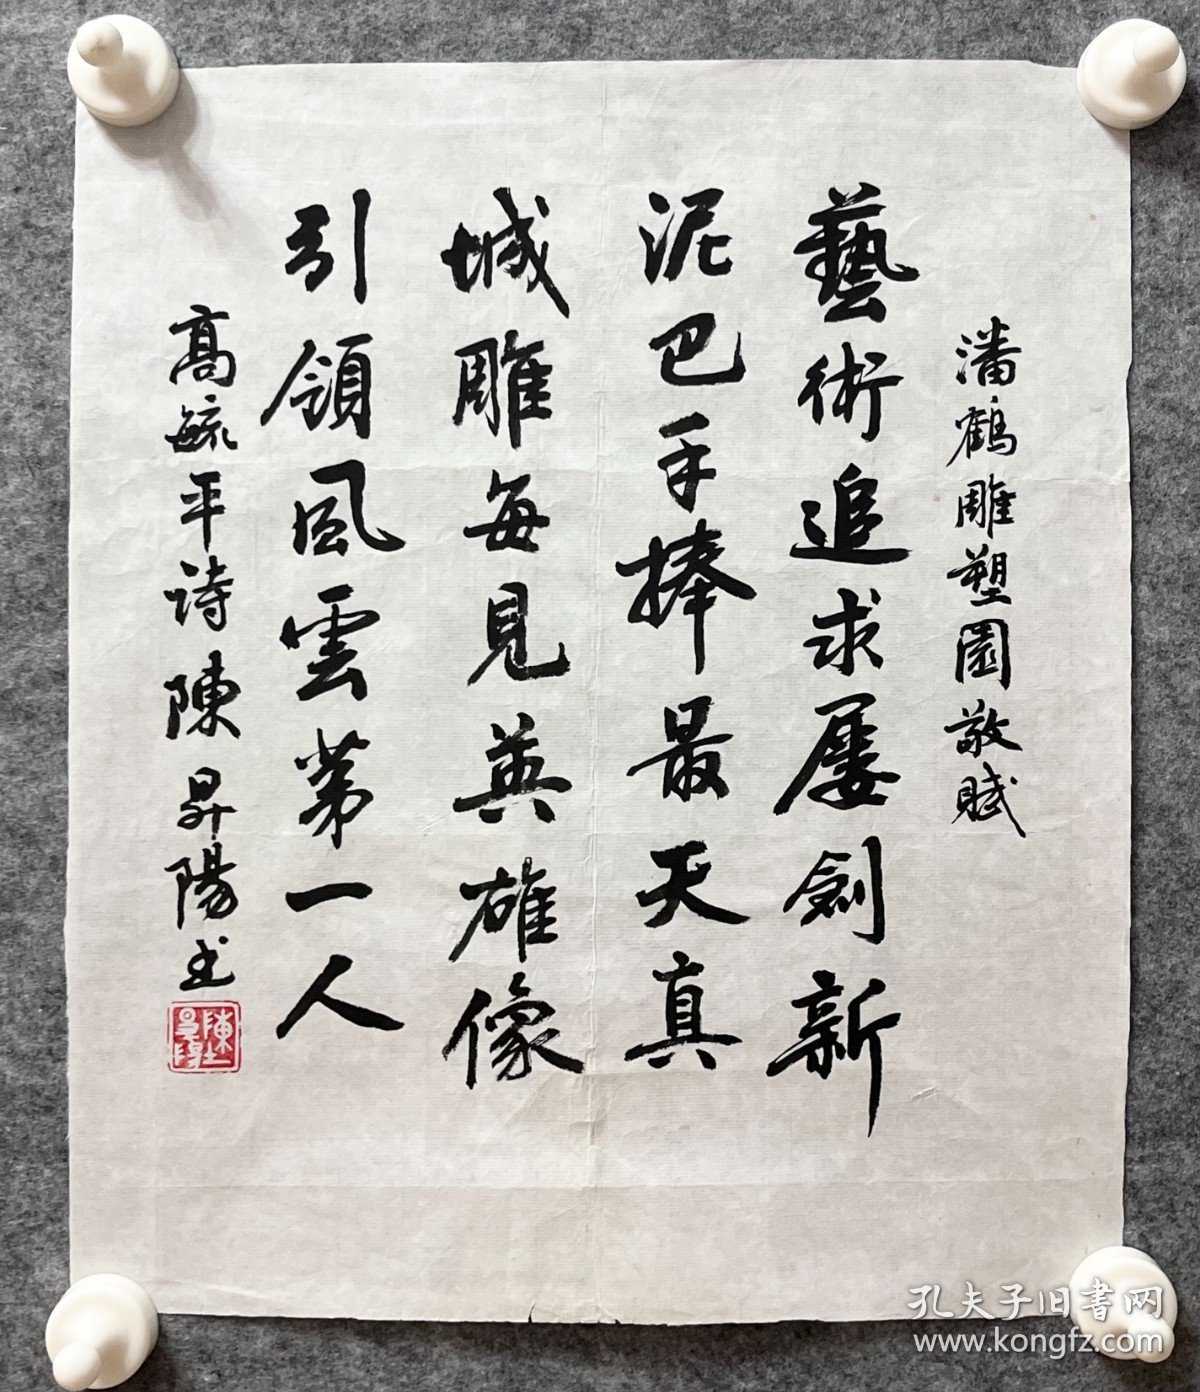 潘鶴雕塑園敬賦
藝術追求屢創新
泥巴手捧最天真
城雕每見英雄像
引領風雲第一人
高毓平詩 陳昇陽书
陳昇陽
孔夫子旧書网
www.kongfz.com